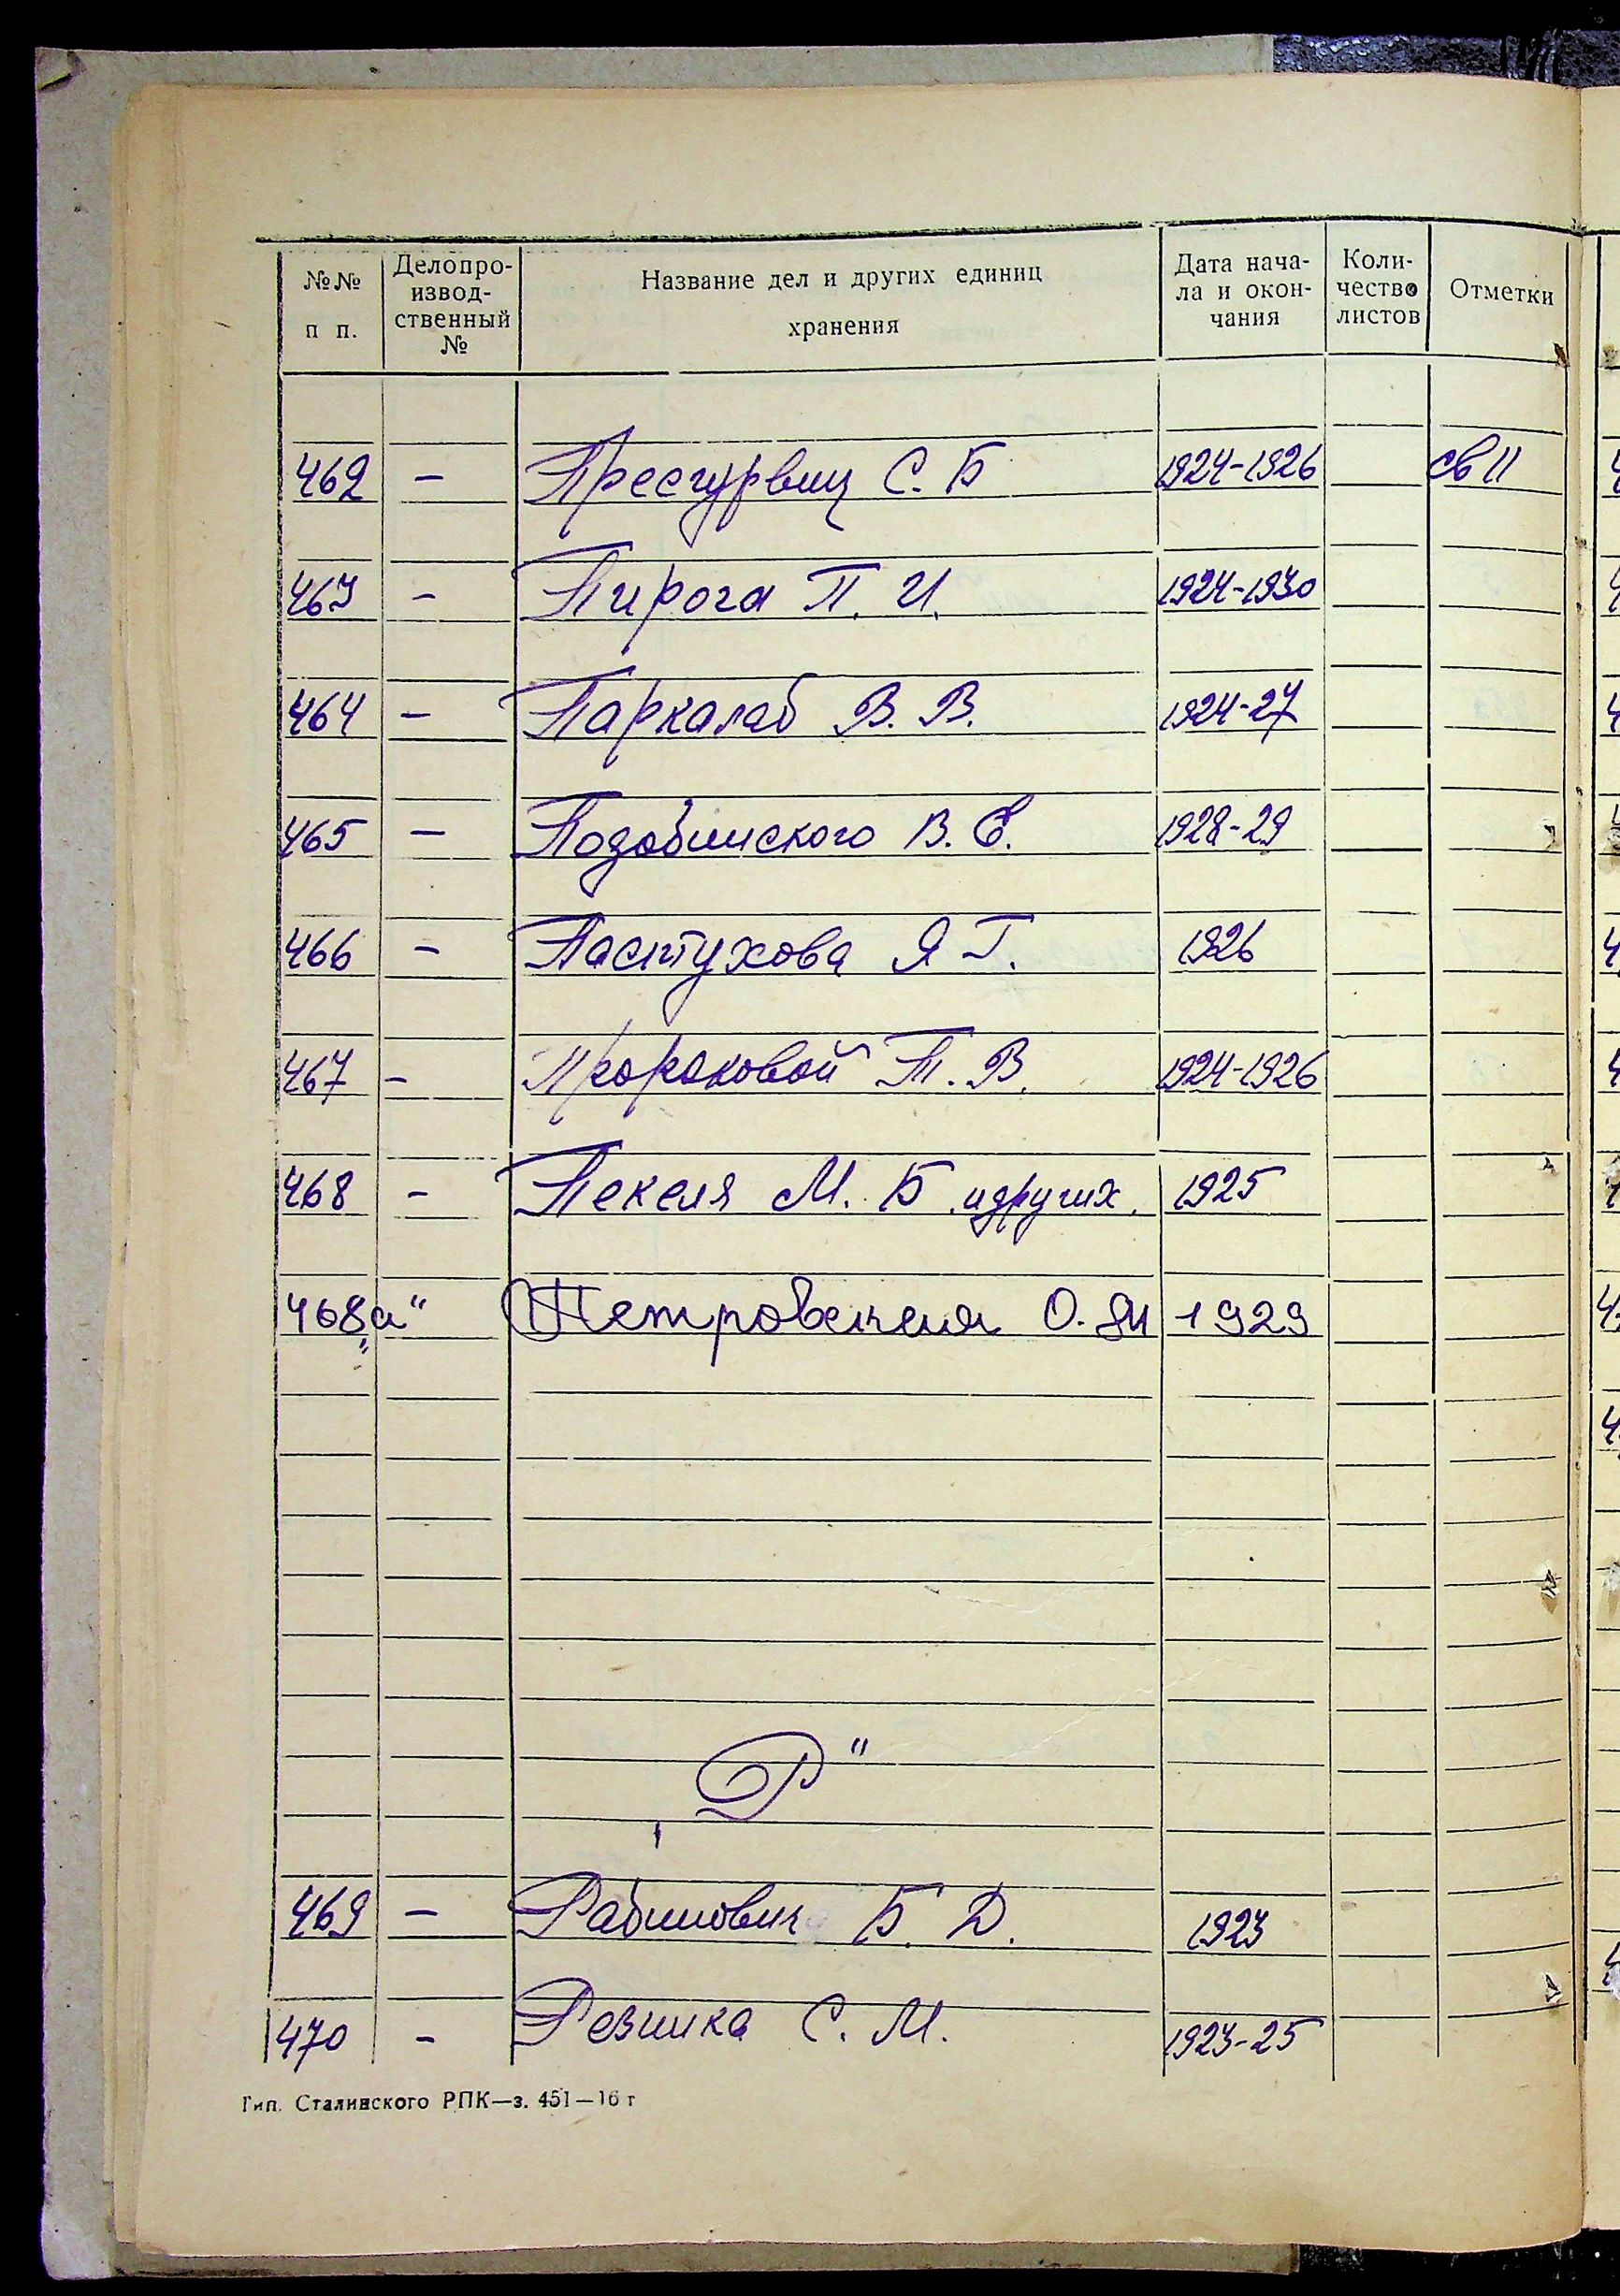 №№ п п.
Делопро-
извод-
ственный
№
Название дел и других единиц
хранения
Дата нача-
ла и окон-
чания
Коли-
чество
листов
Отметки
462 - Пресгурвиц С. Б 1924-1926 св 11
463 - Пирога П. И. 1924-1930
464 - Паркалаб В. В. 1924-27
465 - Подобинского В. Е. 1928-29
466 - Пастухова Я Г. 1926
467 - Пророковой Т. В. 1924-1926
468 - Пекеля М. Б. и других. 1925
468 „а“ Петровский О. 1929
Р"
469 - Рабинович Б. Д. 1923
470 - Резника С. М. 1923-25
Тип. Сталинского РПК—з. 451—16 г